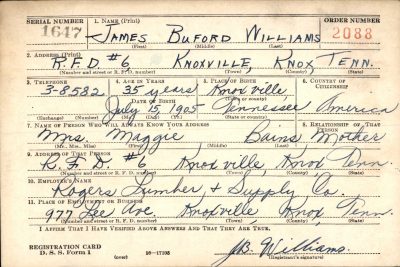 SERIAL NUMBER 1. NAME (Print) ORDER NUMBER
1647 JAMES BUFORD WILLIAMS 2088
(First) (Middle) (Last)
2. ADDRESS (Print)
R.F.D. #6 KNOXVILLE, KNOX TENN.
(Number and street or R. F. D. number) (Town) (County) (State)
3. TELEPHONE 4. AGE IN YEARS 5. PLACE OF BIRTH 6. COUNTRY OF CITIZENSHIP
3-8582 35 years Knoxville
DATE OF BIRTH (Town or county)
July 15, 1905 Tennessee America
(Exchange) (Number) (Mo.) (Day) (Yr.) (State or country)
7. NAME OF PERSON WHO WILL ALWAYS KNOW YOUR ADDRESS 8. RELATIONSHIP OF THAT PERSON
Mrs. Maggie Bains Mother
(Mr., Mrs., Miss) (First) (Middle) (Last)
9. ADDRESS OF THAT PERSON
R.F.D. #6 Knoxville, Knox Tenn.
(Number and street or R. F. D. number) (Town) (County) (State)
10. EMPLOYER'S NAME
Rogers Lumber & Supply Co.
11. PLACE OF EMPLOYMENT OR BUSINESS
977 Lee Ave Knoxville, Knox Tenn.
(Number and street or R. F. D. number) (Town) (County) (State)
I AFFIRM THAT I HAVE VERIFIED ABOVE ANSWERS AND THAT THEY ARE TRUE.
REGISTRATION CARD
D. S. S. Form 1 (over) J.B. Williams.
(Registrant's signature)